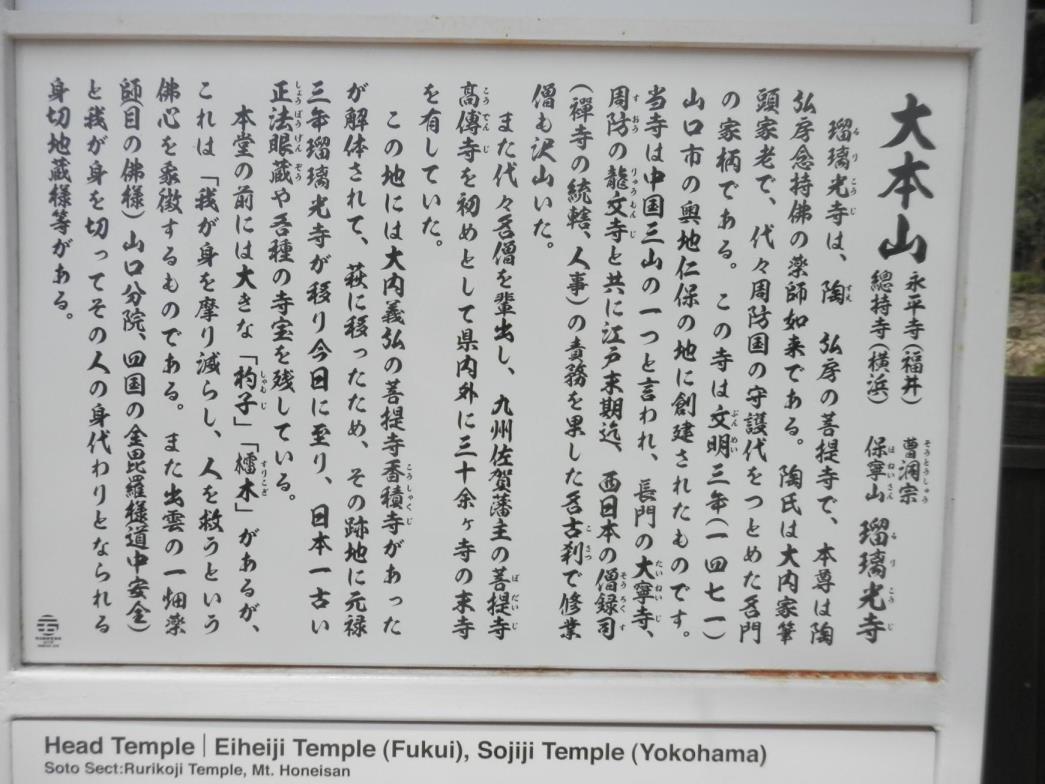 大本山 永平寺(福井) 曹洞宗
總持寺(横浜) 保寧山 瑠璃光寺
瑠璃光寺は、陶 弘房の菩提寺で、本尊は陶
弘房念持佛の薬師如来である。陶氏は大内家筆
頭家老で、代々周防国の守護代をつとめた名門
の家柄である。この寺は文明三年(一四七一)
山口市の奥地仁保の地に創建されたものです。
当寺は中国三山の一つと言われ、長門の大寧寺、
周防の龍文寺と共に江戸末期迄、西日本の僧録司
(禪寺の統轄、人事)の責務を果した名古刹で修業
僧も沢山いた。
また代々名僧を輩出し、九州佐賀藩主の菩提寺
高傳寺を初めとして県内外に三十余ヶ寺の末寺
を有していた。
この地には大内義弘の菩提寺香積寺があった
が解体されて、萩に移ったため、その跡地に元禄
三年瑠璃光寺が移り今日に至り、日本一古い
正法眼蔵や各種の寺宝を残している。
本堂の前には大きな「杓子」「橲木」があるが、
これは「我が身を摩り減らし、人を救うという
佛心を象徴するものである。また出雲の一畑薬
師(目の佛様)山口分院、四国の金毘羅様(道中安全)
と我が身を切ってその人の身代わりとなられる
身切地蔵様等がある。
Head Temple | Eiheiji Temple (Fukui), Sojiji Temple (Yokohama)
Soto Sect:Rurikoji Temple, Mt. Honeisan